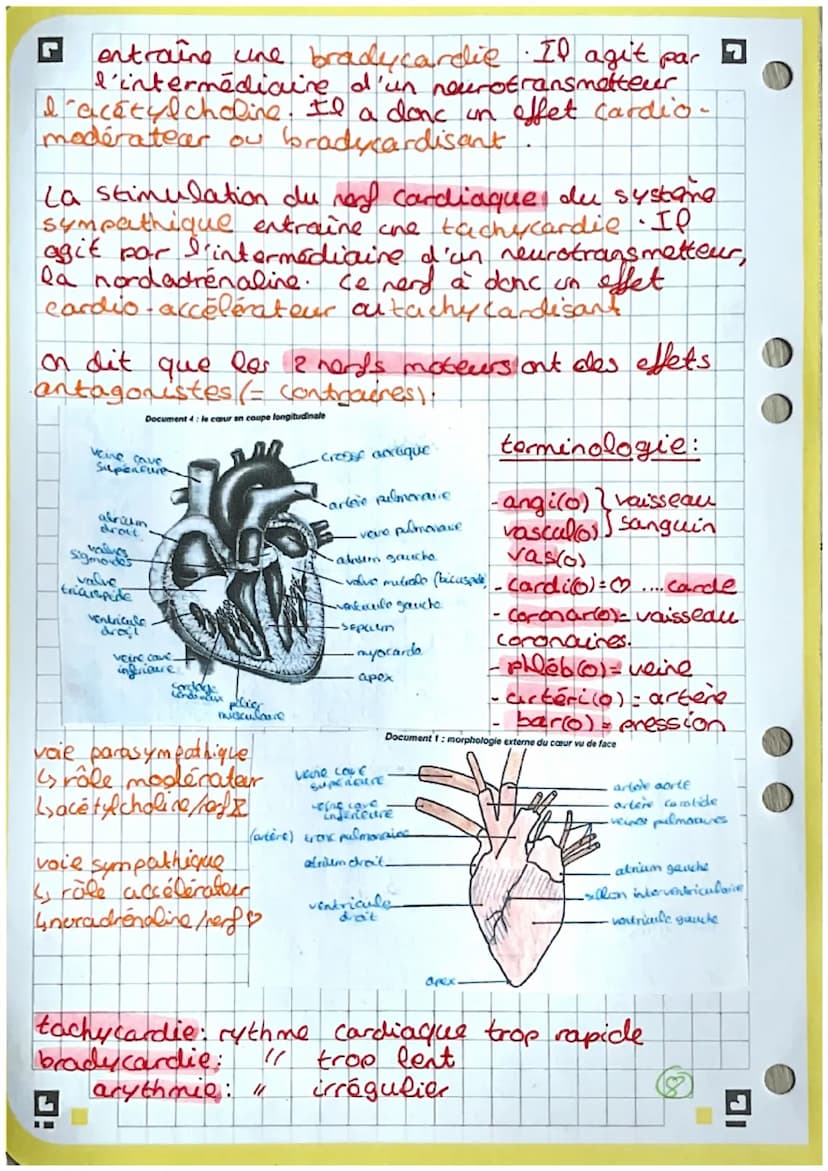 entraîne une bradycardie. Il agit par
l'intermédiaire d'un neurotransmetteur
l'acétylcholine. Il a donc un effet cardio-
modérateur ou bradycardisant.
La stimulation du nerf cardiaque du système
sympathique entraîne une tachycardie. Il
agit par l'intermédiaire d'un neurotransmetteur,
la nordadrénaline. Ce nerf à donc un effet
cardio-accélérateur ou tachycardisant
on dit que les 2 nerfs moteurs ont des effets
antagonistes (= contraires).
Document 4 : le cœur en coupe longitudinale
veine cave
supérieure
atrium
droit
valves
sigmoïdes
valve
tricuspide
ventricule
droit
veine cave
inférieure
cordage
tendineux
pilier
musculaire
crosse aortique
artère pulmonaire
veine pulmonaire
atrium gauche
valve mitrale (bicuspide)
ventricule gauche
septum
myocarde
apex
terminologie:
- angi(o) } vaisseau
vascul(o) } sanguin
vas(o)
- cardi(o) = ♡ ....carde
- coronar(o) = vaisseau
coronaires.
- phléb(o) = veine
- artéri(o) = artère
- bar(o) = pression
voie parasympathique
↳ rôle modérateur
↳ acétylcholine/nerf X
voie sympathique
↳ rôle accélérateur
↳ noradrénaline/nerf ♡
Document 1 : morphologie externe du cœur vu de face
veine cave
supérieure
veine cave
inférieure
(artère) tronc pulmonaire
atrium droit
ventricule
droit
apex
artère aorte
artère carotide
veines pulmonaires
atrium gauche
sillon interventriculaire
ventricule gauche
tachycardie: rythme cardiaque trop rapide
bradycardie: " trop lent
arythmie: " irrégulier
8